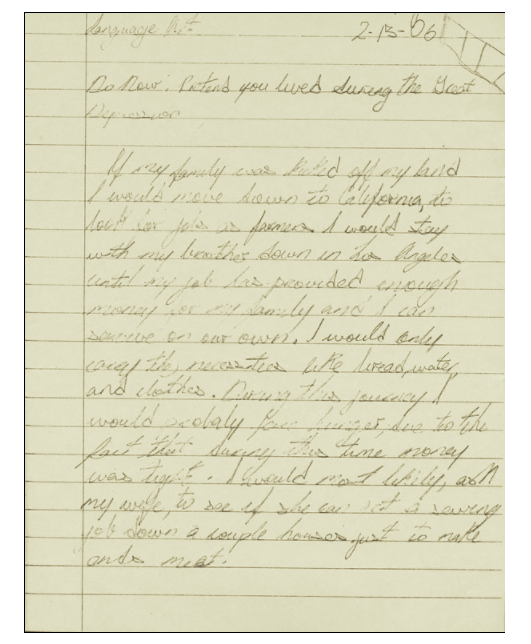 Language Art
2-13-06
Do Now: Pretend you lived during the Great
Depression
If my family was kicked off my land
I would move down to California, to
look for jobs as farmers I would stay
with my brother down in Los Angeles
until my job has provided enough
money for my family and I can
survive on our own. I would only
carry the necessities like bread, water,
and clothes. During this journey I
would probaly face hunger, due to the
fact that during this time money
was tight. I would most likely, ask
my wife, to see if she can get a sewing
job down a couple houses just to make
ends meat.